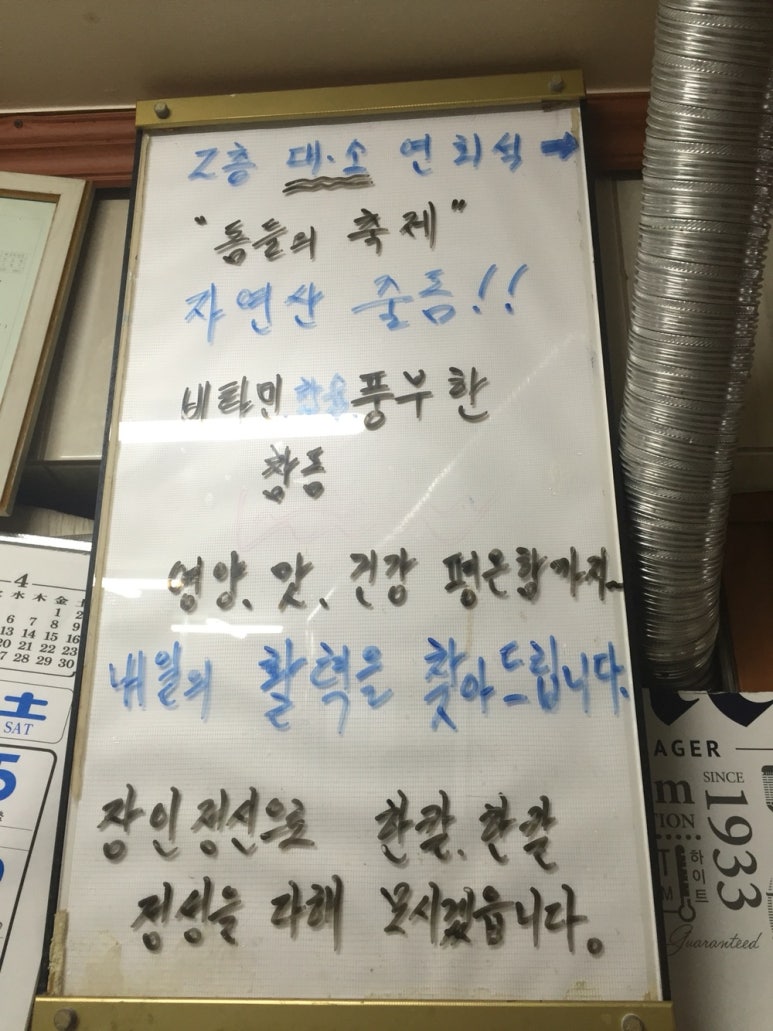 2층 대·소 연회석 →
"돔들의 축제"
자연산 줄돔!!
비타민 함유 풍부한
참돔
영양, 맛, 건강 평온함까지~
내일의 활력을 찾아드립니다.
장인정신으로 한칼, 한칼
정성을 다해 모시겠읍니다。
4
水 木 金 土
1 2
6 7 8 9
13 14 15 16
20 21 22 23
27 28 29 30
土
SAT
5
AGER
SINCE
1933
하이트
Guaranteed